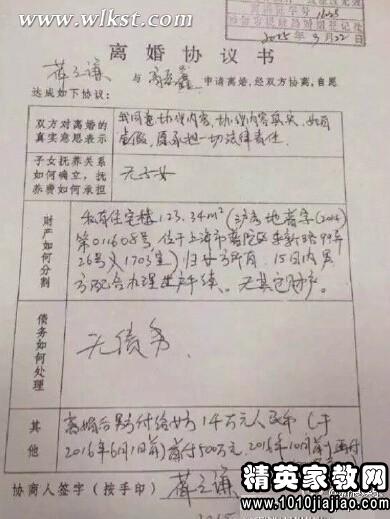 www.wlkst.com
2015年9月22日
离婚协议书
薛之谦 与 高磊鑫 申请离婚,经双方协商,自愿
达成如下协议:
双方对离婚的
真实意思表示
我同意协议内容,协议内容真实,如有
虚假,愿承担一切法律责任
子女抚养关系
如何确立,抚
养费如何承担
无子女
财产如何分割
私有住宅楼123.34m²(沪房地普字(2014)
第011608号,位于上海市普陀区
26号 1703室)归女方所有,15日内男
方配合办理过户手续。无其它财产。
债务如何处理
无债务.
其他
离婚后男方付给女方1千万元人民币(于
2016年6月1日前)首付500万元,2016年10月前再付
协商人签字(按手印) 薛之谦
2015
精英家教网
www.1010jiajiao.com